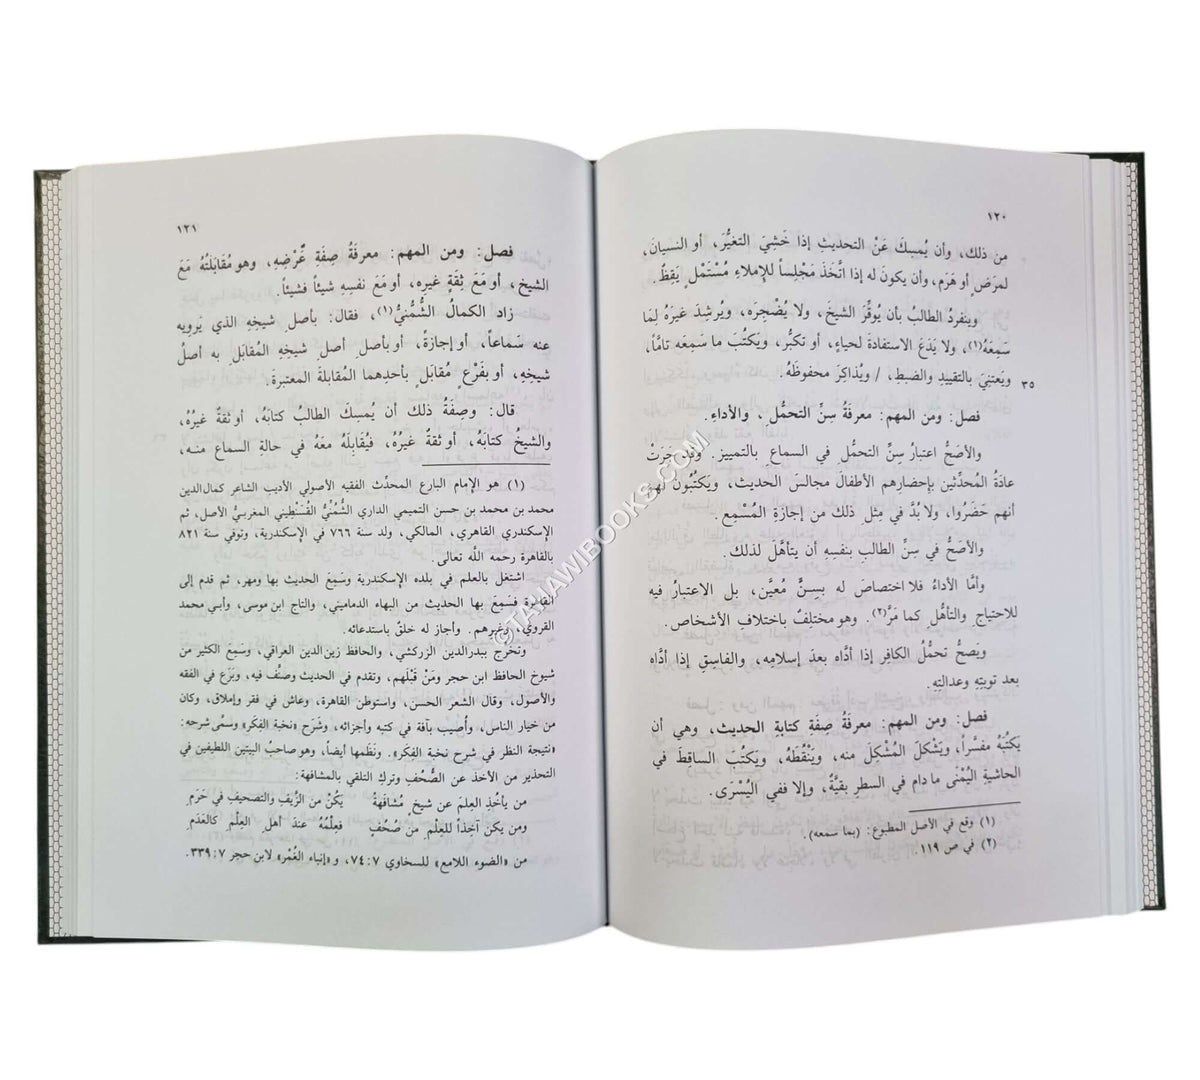 ١٢٠
من ذلك، وأن يُمسِكَ عَنْ التحديث إذا خَشِيَ التغيُّرَ، أو النسيان،
لمرَضٍ أو هَرَم، وأن يكونَ له إذا اتَّخَذَ مَجْلِساً للإملاءِ مُسْتَمْلٍ يَقِظٌ.
وينفردُ الطالبُ بأن يُوقِّرَ الشيخَ، ولا يُضْجِرَه، ويُرشِدَ غيرَهُ لِمَا
سَمِعَهُ(١)، ولا يَدَعَ الاستفادةَ لحياءٍ، أو تكبُّر، ويَكتُبَ ما سَمِعَه تامّاً،
ويَعتنِيَ بالتقييدِ والضبطِ، / ويُذاكِرَ محفوظَهُ.
٣٥
فصل: ومن المهم: معرفةُ سِنِّ التحمُّلِ، والأداءِ.
والأصَحُّ اعتبارُ سِنِّ التحمُّل في السماعِ بالتمييز. وقد جَرَتْ
عادَةُ المُحدِّثين بإحضارِهم الأطفالَ مجالسَ الحديث، ويَكتُبُون لهم
أنهم حَضَرُوا، ولا بُدَّ في مِثلِ ذلك من إجازةِ المُسْمِع.
والأصَحُّ في سِنِّ الطالب بنفسِهِ أن يتأهَّلَ لذلك.
وأمَّا الأداءُ فلا اختصاصَ له بِسِنٍّ مُعيَّن، بل الاعتبارُ فيه
للاحتياجِ والتأهُّل كما مَرَّ(٢). وهو مختلفٌ باختلافِ الأشخاص.
ويصحُّ تحمُّلُ الكافِرِ إذا أدَّاه بعدَ إسلامِه، والفاسِقِ إذا أدَّاه
بعد توبتِهِ وعدالتِهِ.
فصل: ومن المهم: معرفةُ صِفةِ كتابةِ الحديث، وهي أن
يَكتُبَه مفسَّراً، ويَشْكُلَ المُشْكِلَ منه، ويَنْقُطَهُ، ويَكتُبَ الساقِطَ في
الحاشيةِ اليُمْنَى ما دام في السطرِ بقيَّةٌ، وإلا ففي اليُسْرَى.
(١) وقع في الأصل المطبوع: (بما سمعه).
(٢) في ص ١١٩.
١٢١
فصل: ومن المهم: معرفةُ صِفَةِ عَرْضِهِ، وهو مُقابَلتُهُ مَعَ
الشيخِ، أو مَعَ ثِقَةٍ غيرِه، أو مَعَ نفسِهِ شيئاً فشيئاً.
زاد الكمالُ الشُّمُنِّيُّ(١)، فقال: بأصلِ شيخِهِ الذي يَروِيه
عنه سَمَاعاً، أو إجازةً، أو بأصلِ أصلِ شيخِهِ المُقابَلِ به أصلُ
شيخِهِ، أو بفَرْعٍ مُقابَلٍ بأحدِهما المُقابلةَ المعتبرةَ.
قال: وصِفَةُ ذلك أن يُمسِكَ الطالبُ كتابَهُ، أو ثقةٌ غيرُهُ،
والشيخُ كتابَهُ، أو ثقةٌ غيرُه، فيُقابِلَهُ مَعَهُ في حالةِ السماع منه،
(١) هو الإمام البارع المحدِّث الفقيه الأصولي الأديب الشاعر كمال الدين
محمد بن محمد بن حسن التميمي الداري الشُّمُنِّيُّ القُسَنْطِيني المغربيُّ الأصل، ثم
الإسكندري القاهري، المالكي، ولد سنة ٧٦٦ في الإسكندرية، وتوفي سنة ٨٢١
بالقاهرة رحمه الله تعالى.
اشتغل بالعلم في بلده الإسكندرية وسَمِعَ الحديث بها ومهر، ثم قدم إلى
القاهرة فسَمِعَ بها الحديث من البهاء الدماميني، والتاج ابن موسى، وأبي محمد
القروي، وغيرهم. وأجاز له خلقٌ باستدعائه.
وتخرَّج ببدرالدين الزركشي، والحافظ زين الدين العراقي، وسَمِعَ الكثير من
شيوخ الحافظ ابن حجر ومَنْ قَبْلَهم، وتقدم في الحديث وصنَّف فيه، وبَرَع في الفقه
والأصول، وقال الشعر الحسن، واستوطن القاهرة، وعاش في فقر وإملاق، وكان
من خيار الناس، وأُصيب بآفة في كتبه وأجزائه، وشَرَح «نخبة الفِكَر» وسمَّى شرحه:
«نتيجة النظر في شرح نخبة الفِكَر». ونَظَمها أيضاً، وهو صاحبُ البيتين اللطيفين في
التحذير من الأخذ عن الصُّحُفِ وتركِ التلقي بالمشافهة:
من يأخُذِ العِلمَ عن شيخٍ مُشافهةً يَكُنْ من الزَّيفِ والتصحيفِ في حَرَمِ
ومن يكن آخِذاً للعِلْمِ من صُحُفٍ فعِلْمُهُ عندَ أهلِ العِلْمِ كالعَدَمِ
من «الضوء اللامع» للسخاوي ٧: ٧٤، و«إنباء الغُمْر» لابن حجر ٧: ٣٣٩.
©TAHAWIBOOKS.COM